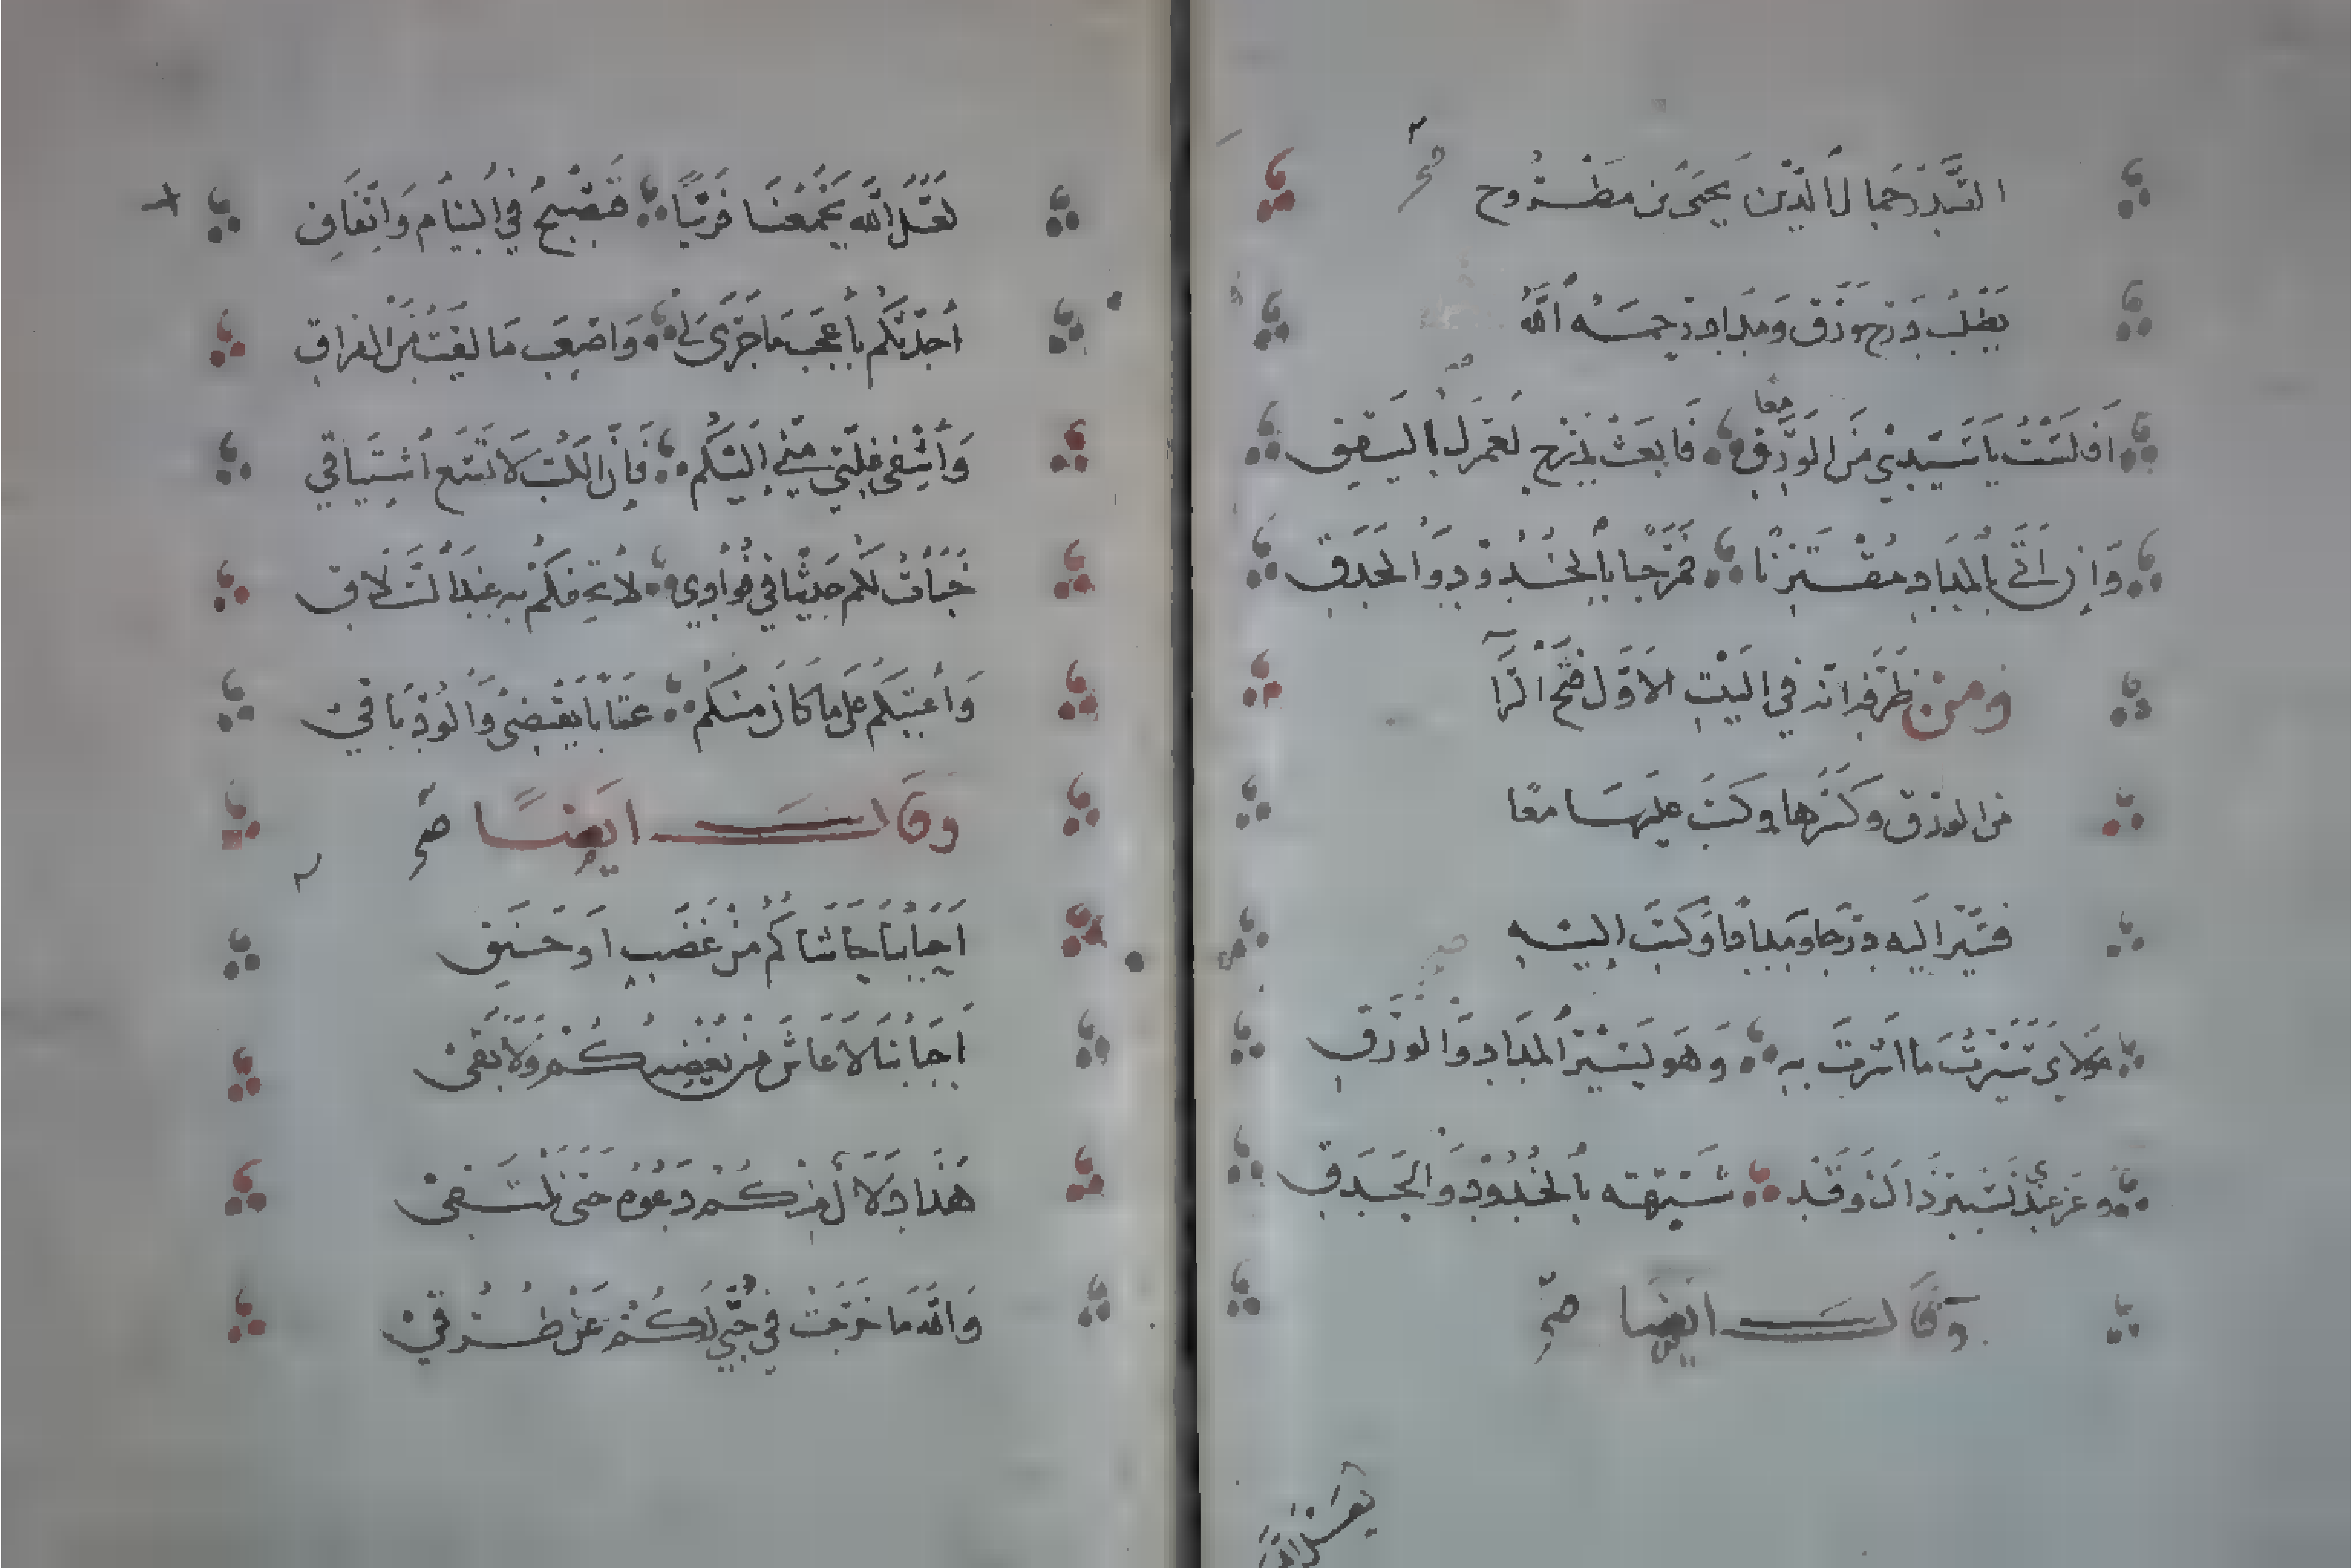 السَّيِّد جَمَال الدِّين يَحْيَى بن مَطْرُوح صح
يَطْلُبُ دَرْج وَرَق وَمِدَاد رَحِمَهُ اللَّهُ
أَفْلَسْتُ يَا سَيِّدِي مِنَ الْوَرَقِ معا فَابْعَثْ بِدَرْجٍ كَعِرْضِكَ الْيَقَقِ
وَإِنْ أَتَى بِالْمِدَادِ مُقْتَرِنًا فَمَرْحَبًا بِالْخُدُودِ وَالْحَدَقِ
وَمِنْ ظَرَفِهِ أَنَّهُ فِي الْبَيْتِ الْأَوَّلِ فَتَحَ الرَّا
مِنَ الْوَرَق وَكَسَرَهَا وَكَتَبَ عَلَيْهَا مَعًا
فَسَيَّرَ إِلَيْهِ دَرْجًا وَمِدَادًا وَكَتَبَ إِلَيْهِ
مَوْلَايَ سَيَّرْتُ مَا أَمَرْتَ بِهِ وَهْوَ يَسِيرُ الْمِدَادِ وَالْوَرَقِ
وَعَزَّ عِنْدِي تَسْيِيرُ ذَاكَ وَقَدْ شَبَّهْتَهُ بِالْخُدُودِ وَالْحَدَقِ
وَقَالَ أَيْضًا صح
لَعَلَّ
لَعَلَّ اللَّهَ يَجْمَعُنَا قَرِيبًا فَنُصْبِحُ فِي الْتِيَامٍ وَاتِّفَاقِ
أُحَدِّثُكُم بِأَعْجَبِ مَا جَرَى لِي وَأَصْعَبِ مَا لَقِيتُ مِنَ الْفِرَاقِ
وَأَشْفِي غُلَّتِي مِنِّي إِلَيْكُم فَإِنَّ الْكُتْبَ لَا تَسَعُ اشْتِيَاقِي
خَبَأْتُ لَكُم حَدِيثًا فِي فُؤَادِي لِأُتْحِفَكُمْ بِهِ عِنْدَ التَّلَاقِ
وَأَعْتِبُكُم عَلَى مَا كَانَ مِنْكُم عِتَابًا يَنْقَضِي وَالْوُدُّ بَاقِي
وَقَالَ أَيْضًا صح
أَحْبَابَنَا حَاشَاكُمُ مِنْ غَضَبٍ أَوْ حَنَقِ
أَحْبَابَنَا لَا عَاشَ مَنْ يُغْضِبُكُمْ وَلَا بَقِي
هَذَا دَلَالٌ مِنْكُمُ دَعُوهُ حَتَّى نَلْتَقِي
وَاللَّهِ مَا خَرَجْتُ فِي حُبِّي لَكُمْ عَنْ طُرُقِي